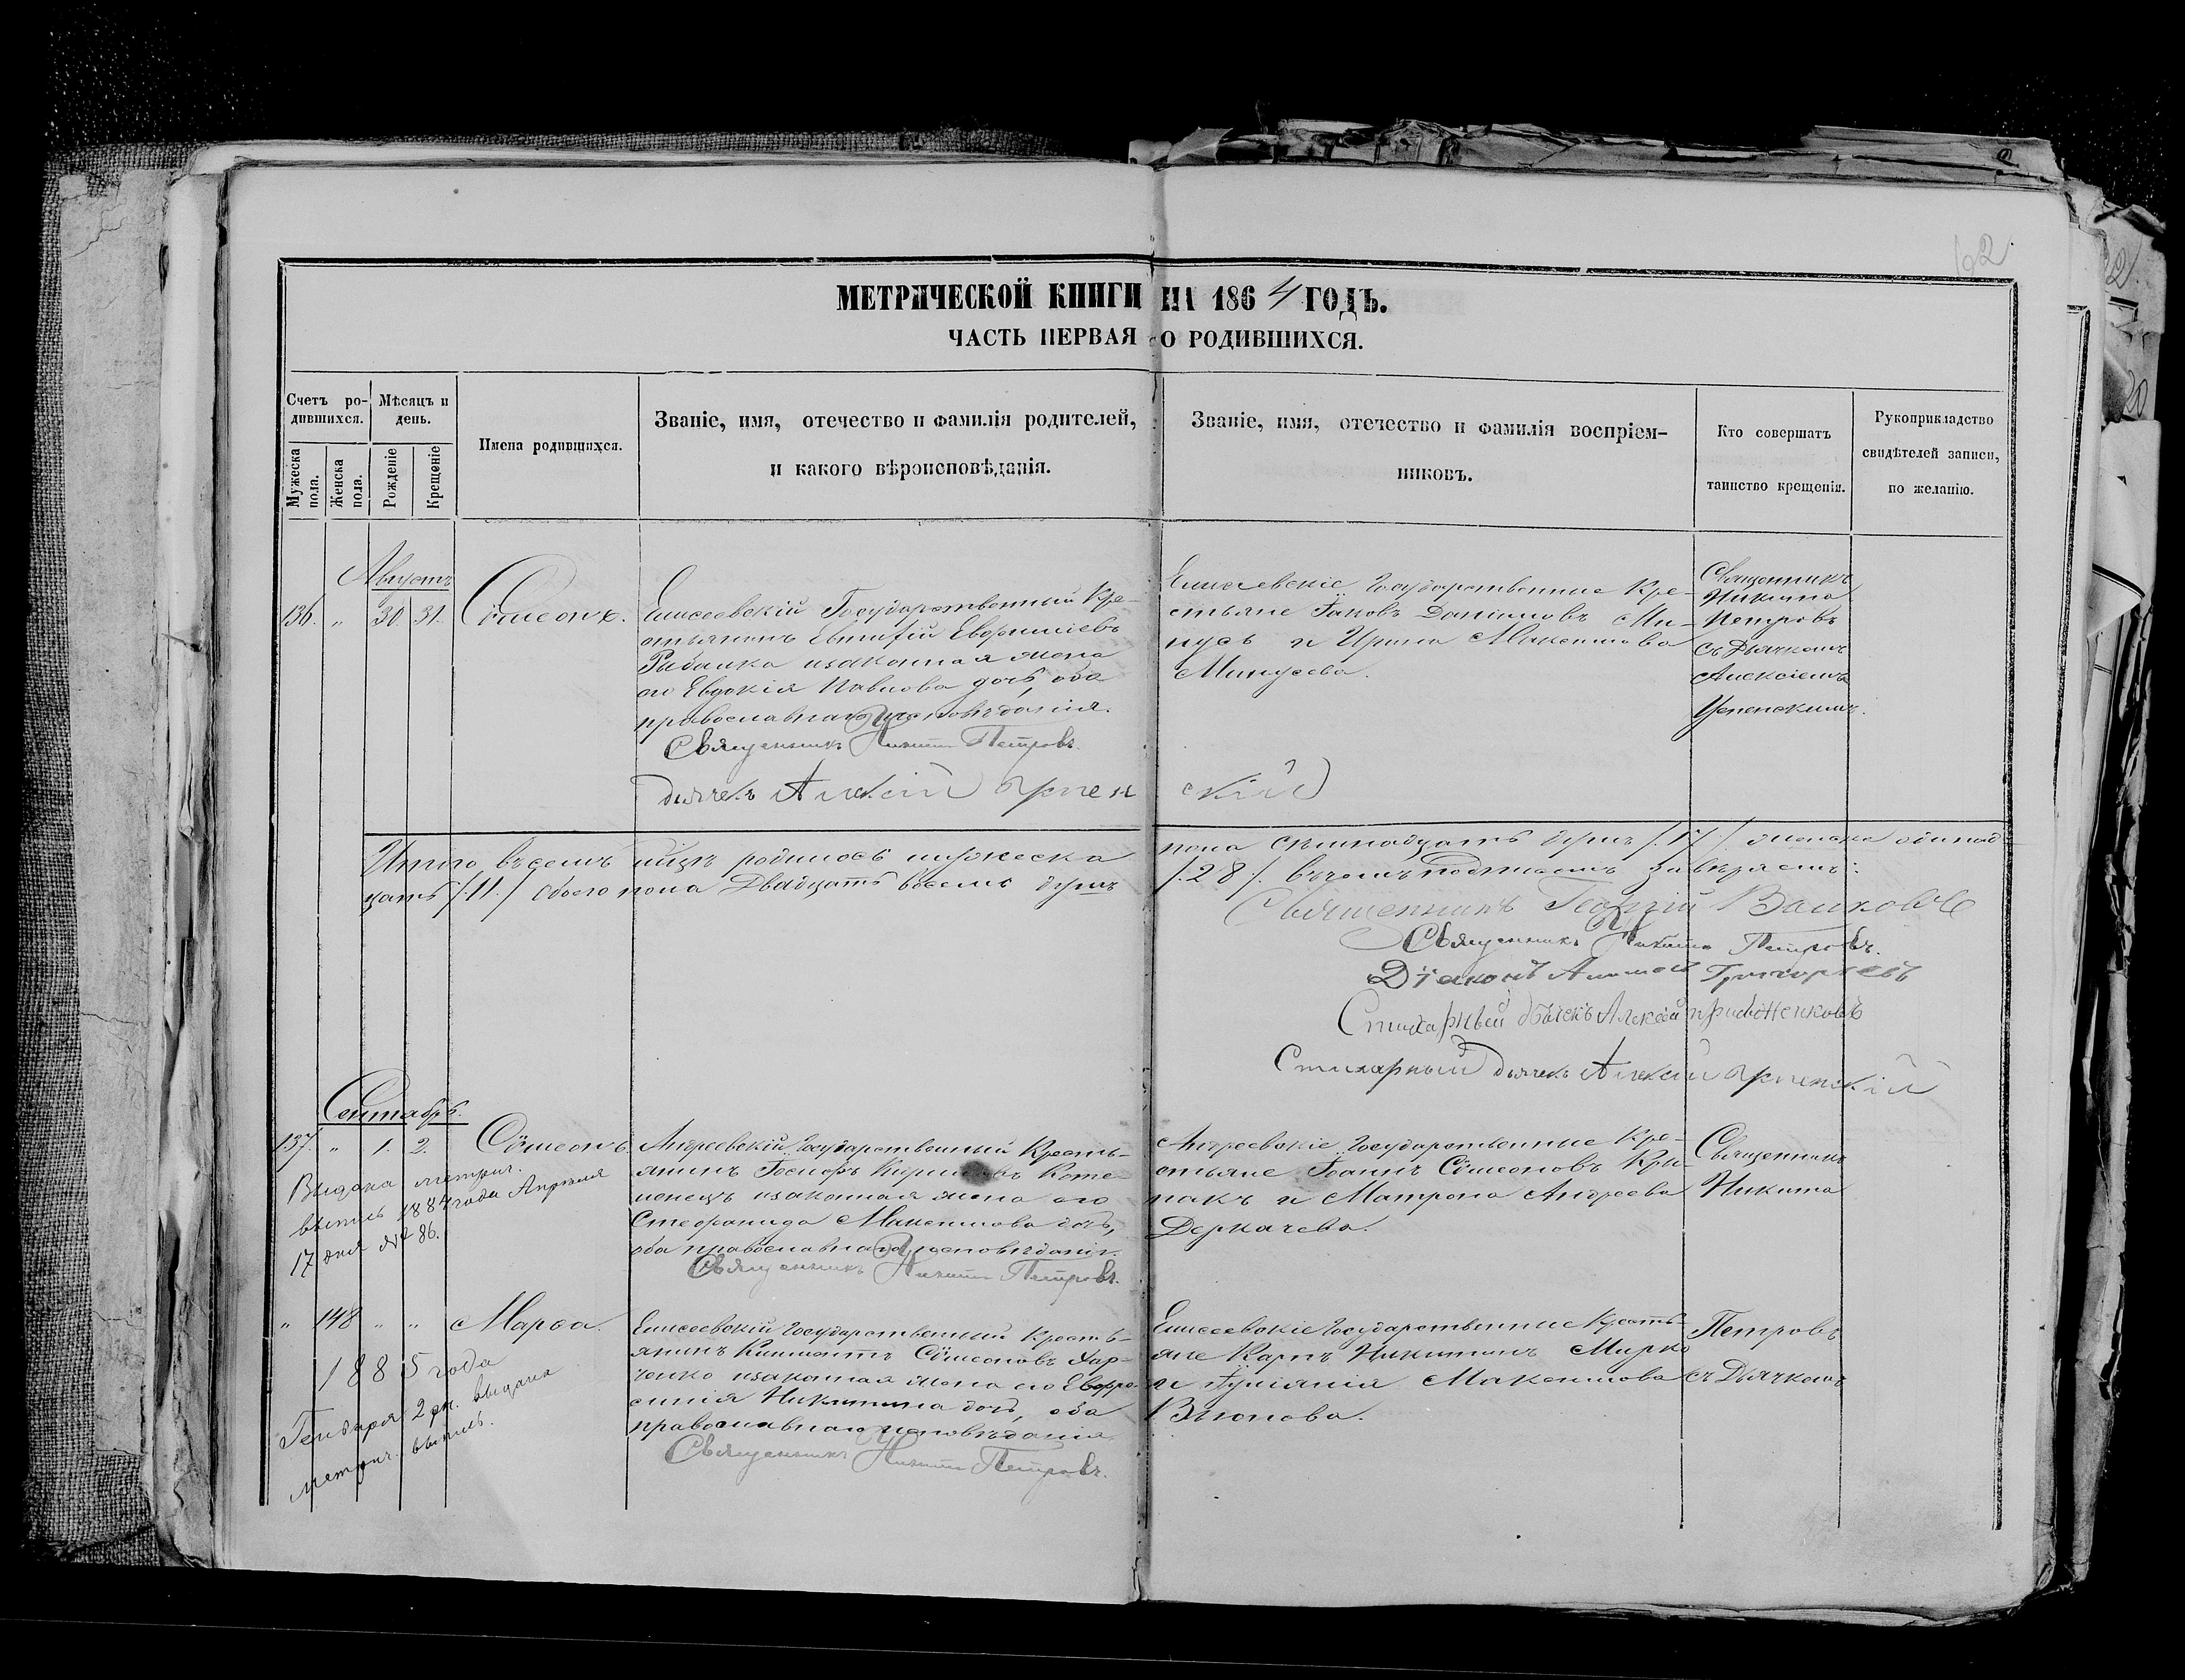 62
МЕТРИЧЕСКОЙ КНИГИ НА 1864 ГОДЪ.
ЧАСТЬ ПЕРВАЯ О РОДИВШИХСЯ.
Счетъ родившихся.
Мужеска пола.
Женска пола.
Мѣсяцъ и день.
Рожденіе
Крещеніе
Имена родившихся.
Званіе, имя, отечество и фамилія родителей,
и какого вѣроисповѣданія.
Званіе, имя, отечество и фамилія воспріем-
никовъ.
Кто совершатъ
таинство крещенія.
Рукоприкладство
свидѣтелей записи,
по желанію.
Августъ
136. " 30. 31. Сѵмеонъ.
Елисеевскій Государственный Кре-
стьянинъ Евтифій
Рыбалка изаконная жена
его Евдокія Павлова дочь, оба
православнаго исповѣданія.
Священникъ Никита Петровъ.
дьячекъ Алексій
Елисеевскіе Государственные Кре-
стьяне Іаковъ Даніиловъ Ми-
нусъ и Ирина Максимова
Минусева.
Священникъ
Никита
Петровъ
съ Дьячкомъ
Алексіемъ
Итого въ семъ мѣсяцѣ родилось мужеска
пола семнадцать душъ /.17./ женска одиннад-
цать /.11./ обоего пола Двадцать восемь душъ
/.28./. въ чемъ подписомъ завѣряемъ:
Священникъ Георгій
Священникъ Никита Петровъ.
Діаконъ Григорьевъ
Стихарный дьячекъ Алексѣй
Стихарный дьячекъ Алексій
Сентябрь.
137. " 1. 2. Сѵмеонъ.
Андреевскій Государственный Кресть-
янинъ Іосифъ
изаконная жена его
Стефанида Максимова дочь,
оба православнаго исповѣданія.
Священникъ Никита Петровъ.
Андреевскіе Государственные Кре-
стьяне Іоаннъ Сѵмеоновъ
и Матрона Андреева
Деркачева.
Священникъ
Никита
Выдана метрич.
выпись 1884 года Апрѣля
17 дня № 86.
" 148 " " Марѳа.
Елисеевскій Государственный Кресть-
янинъ Климентъ Сѵмеоновъ Хар-
ченко изаконная жена его Евфро-
синія Никитина дочь, оба
православнаго исповѣданія
Священникъ Никита Петровъ.
Елисеевскіе Государственные Кресть-
яне Карпъ Никитинъ Мирко
и Іуліанія Максимова
Вьюнова.
Петровъ
съ Дьячкомъ
1885 года
Генваря 2 дн. выдана
метрич. выпись.